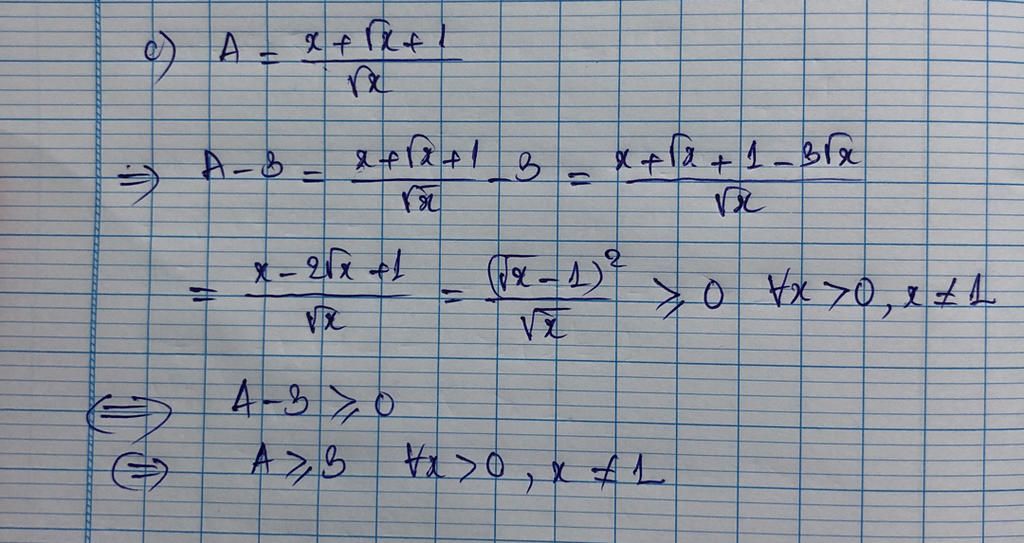 c) A = \frac{x + \sqrt{x} + 1}{\sqrt{x}}
⇒ A - 3 = \frac{x + \sqrt{x} + 1}{\sqrt{x}} - 3 = \frac{x + \sqrt{x} + 1 - 3\sqrt{x}}{\sqrt{x}}
= \frac{x - 2\sqrt{x} + 1}{\sqrt{x}} = \frac{(\sqrt{x} - 1)^2}{\sqrt{x}} ⩾ 0 ∀x > 0, x ≠ 1
⇔ A - 3 ⩾ 0
⇔ A ⩾ 3 ∀x > 0, x ≠ 1